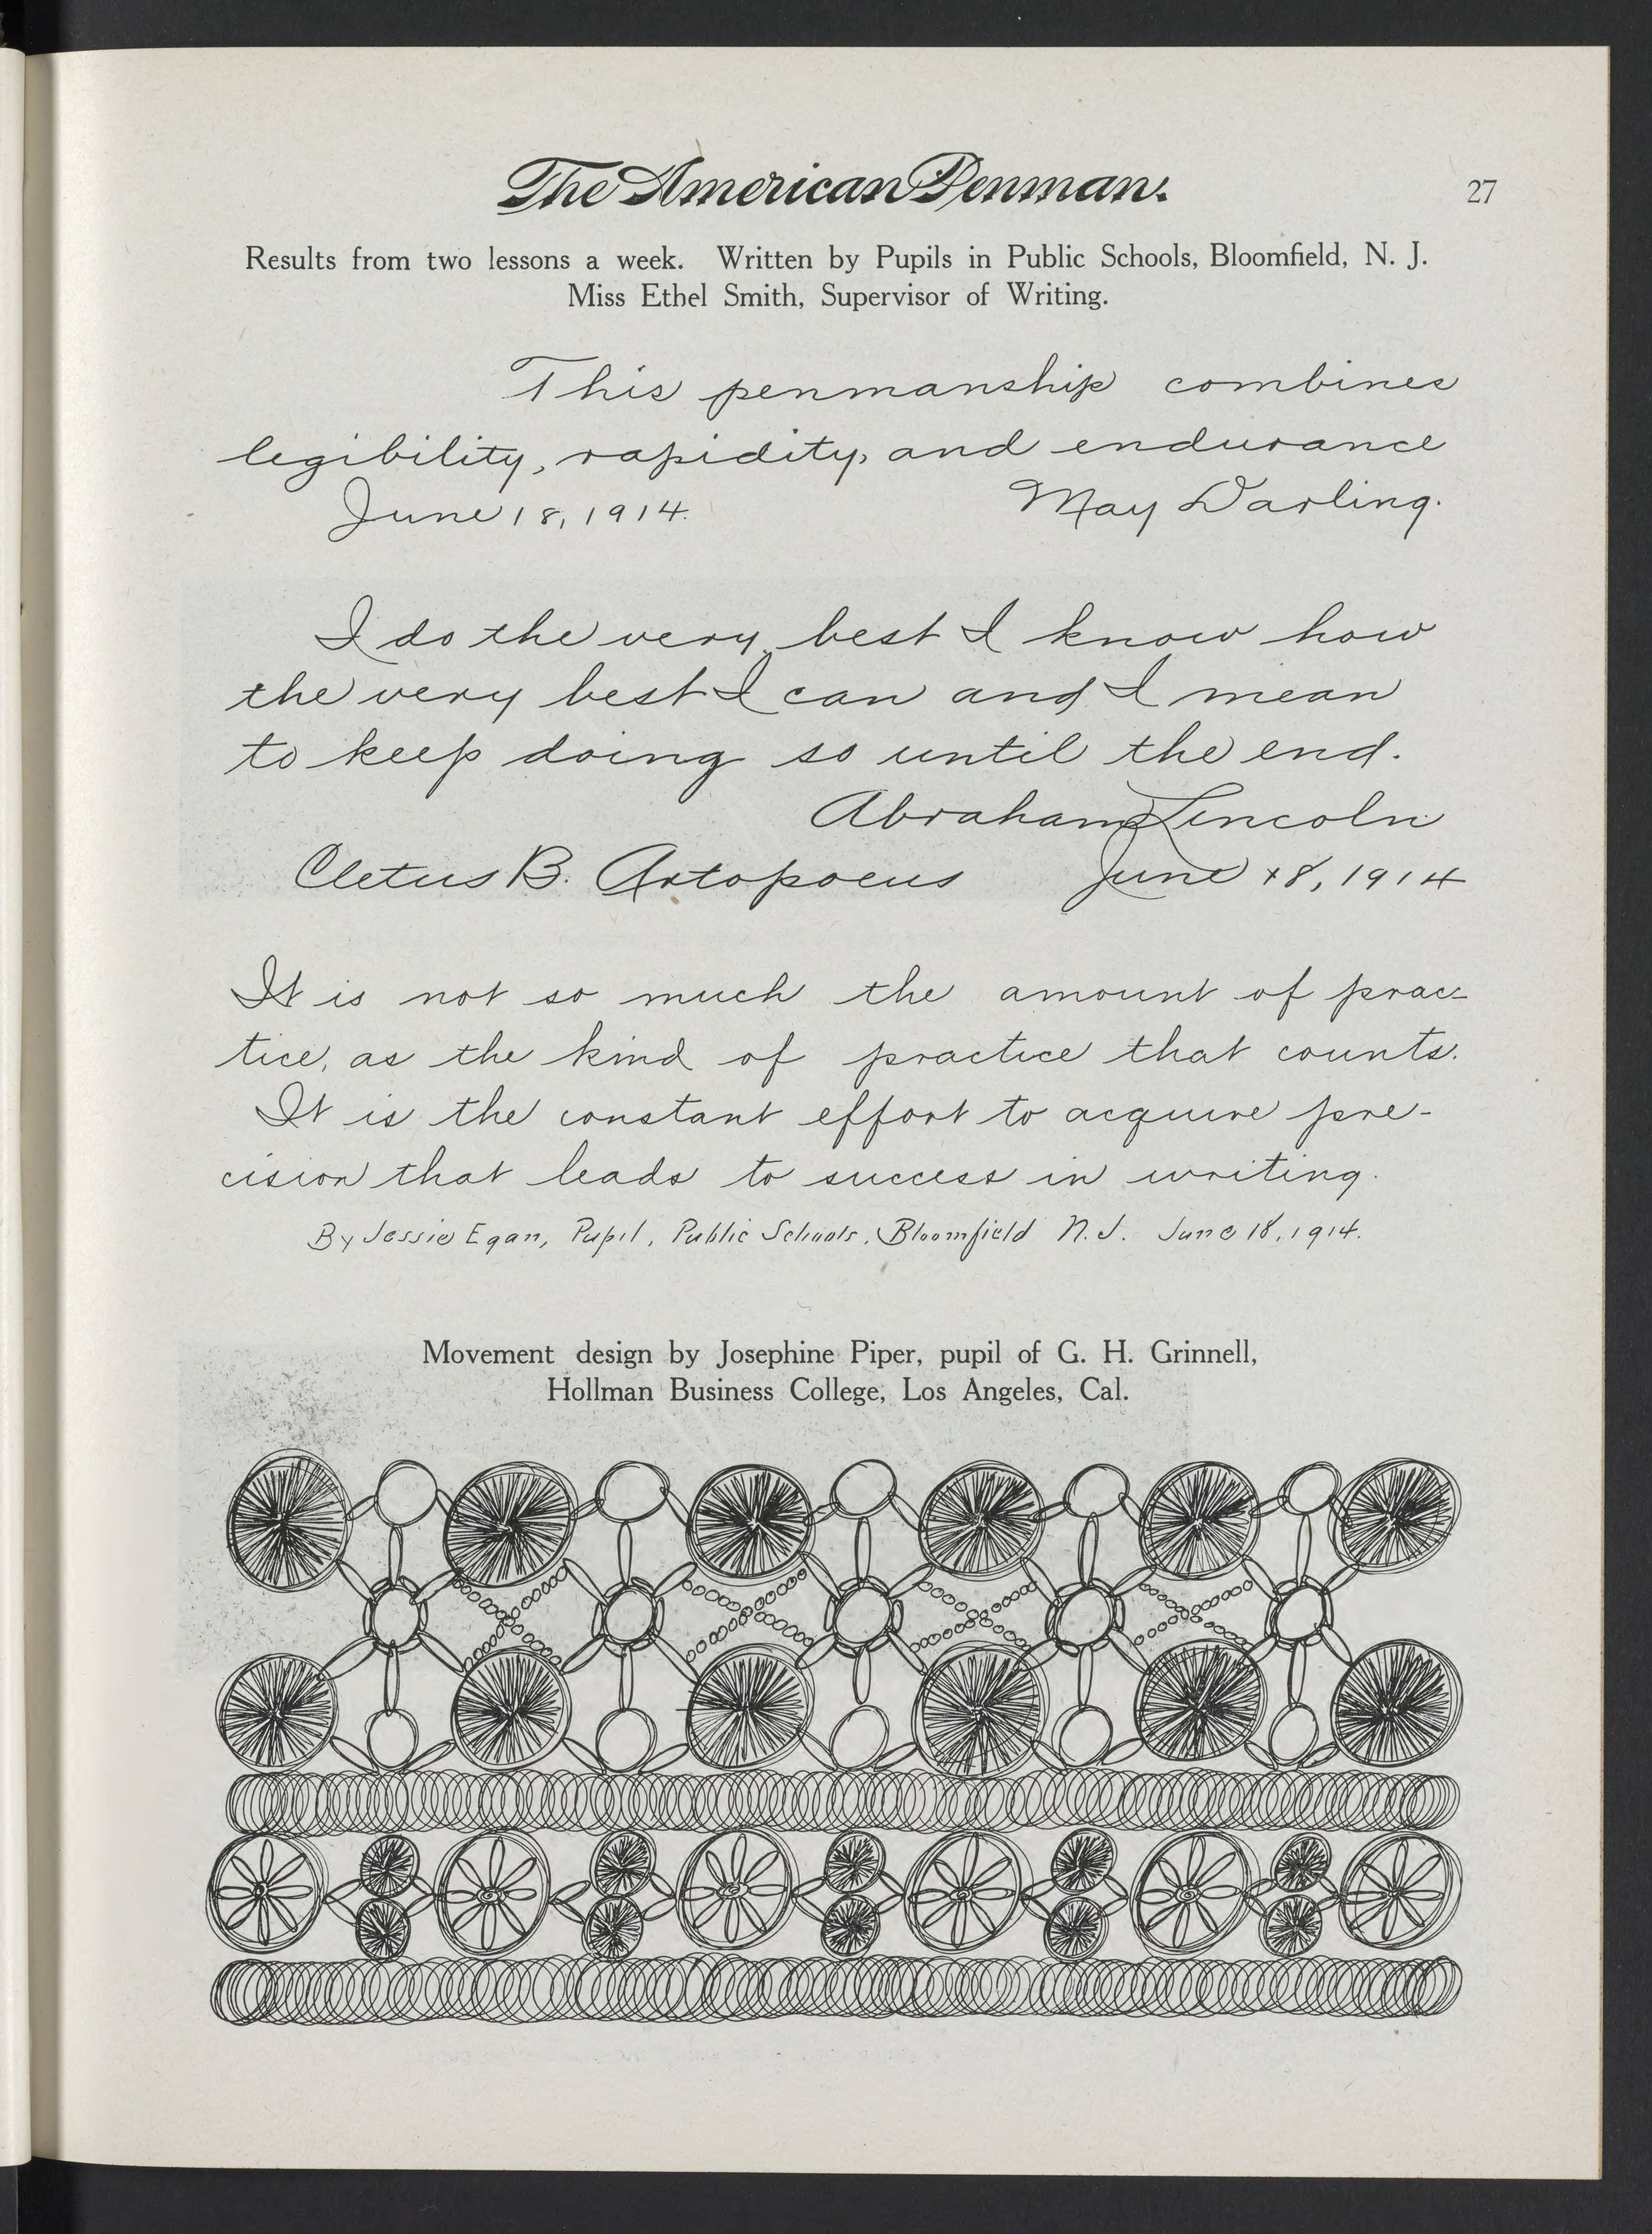 The American Penman.
27
Results from two lessons a week. Written by Pupils in Public Schools, Bloomfield, N. J.
Miss Ethel Smith, Supervisor of Writing.
This penmanship combines
legibility, rapidity, and endurance
June 18, 1914.
May Darling.
I do the very best I know how
the very best I can and I mean
to keep doing so until the end.
Abraham Lincoln
Cletus B. Artopoeus June 18, 1914
It is not so much the amount of prac-
tice, as the kind of practice that counts.
It is the constant effort to acquire pre-
cision that leads to success in writing.
By Jessie Egan, Pupil, Public Schools, Bloomfield N.J. June 18, 1914.
Movement design by Josephine Piper, pupil of G. H. Grinnell,
Hollman Business College, Los Angeles, Cal.